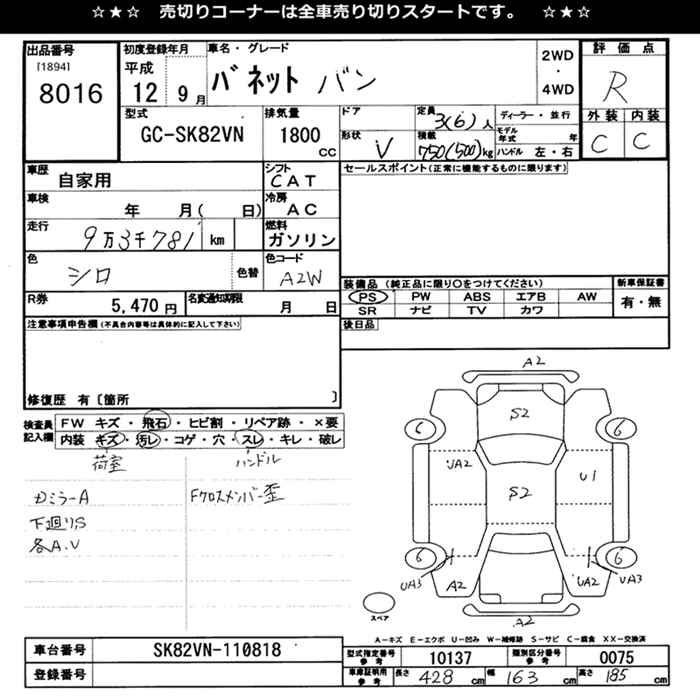 ☆★☆ 売切りコーナーは全車売り切りスタートです。 ☆★☆
出品番号 初度登録年月 車名・グレード 2WD・4WD 評価点
[1894] 8016 平成 12 9月 バネット バン R
型式 排気量 ドア 定員 3(6)人 ディーラー・並行 外装 内装
GC-SK82VN 1800 CC 形状 V 積載 750(500)kg モデル年式 年 ハンドル 左・右 C C
車歴 自家用 シフト CAT セールスポイント(正常に機能するものに限ります)
車検 年 月( 日) 冷房 AC
走行 9万3千781 km 燃料 ガソリン
色 シロ 色替 色コード A2W
装備品(純正品に限り○をつけてください) 新車保証書
PS PW ABS エアB AW 有・無
SR ナビ TV カワ
R券 5,470円 名変通知期限 月 日
後日品
注意事項申告欄(不具合内容等は具体的に記入して下さい)
修復歴 有〔箇所 〕
検査員記入欄 FW キズ・飛石・ヒビ割・リペア跡・×要
内装 キズ・汚レ・コゲ・穴・スレ・キレ・破レ
荷室 ハンドル
カミラーA Fクロスメンバー歪
下廻りS
各A.V
A2
S2
6 6
UA2 S2 U1
6 6
UA3 A2 UA2 UA3
A2
スペア
A-キズ E-エクボ U-凹み W-補修跡 S-サビ C-腐食 XX-交換済
車台番号 SK82VN-110818 型式指定番号 参考 10137 類別区分番号 参考 0075
登録番号 車庫証明用 参考 長さ 428 cm 幅 163 cm 高さ 185 cm